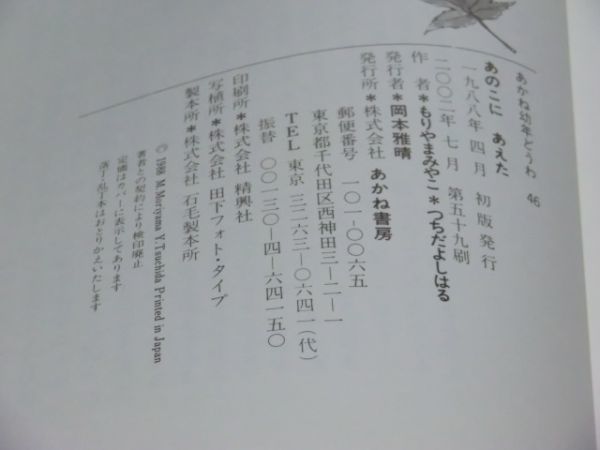 あかね幼年どうわ 46
あのこに あえた
一九八八年 四月 初版発行
二〇〇二年 七月 第五十九刷
作 者*もりやまみやこ*つちだよしはる
発行者*岡本雅晴
発行所*株式会社 あかね書房
郵便番号 一〇一-〇〇六五
東京都千代田区西神田三-二-一
TEL 東京 三二六三-〇六四一(代)
振替 〇〇一三〇-四-六四一五〇
印刷所*株式会社 精興社
写植所*株式会社 田下フォト・タイプ
製本所*株式会社 石毛製本所
© 1988 M.Moriyama Y.Tsuchida Printed in Japan
著者との契約により検印廃止
定価はカバーに表示してあります
落丁・乱丁本はおとりかえいたします